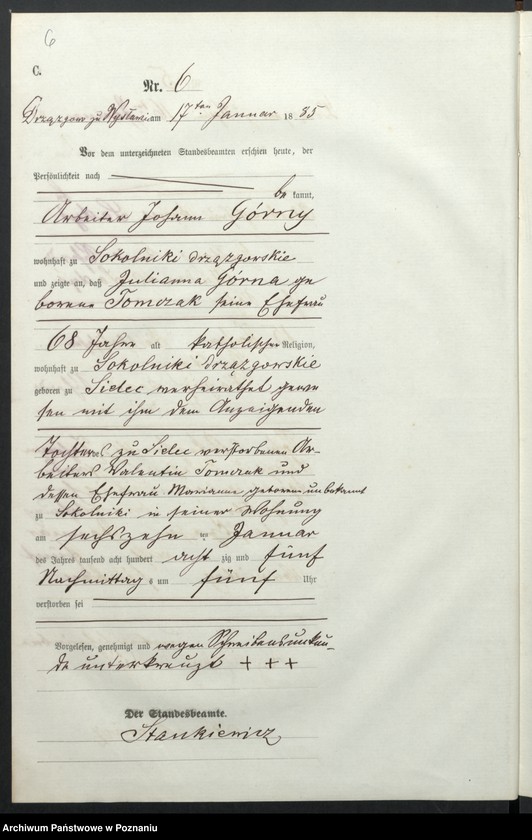 6
C.
Nr. 6
am 17ten Januar 1885
Vor dem unterzeichneten Standesbeamten erschien heute, der
Persönlichkeit nach
bekannt,
Arbeiter Johann Górny
wohnhaft zu Sokolniki drzązgorskie
und zeigte an, daß Julianna Górna ge
borene Tomczak seine Ehefrau
68 Jahre alt katholischer Religion,
wohnhaft zu Sokolniki drzązgorskie
geboren zu Sielec verheirathet gewe
sen mit ihm dem Anzeigenden
Tochter des zu Sielec verstorbenen Ar-
beiters Valentin Tomczak und
dessen Ehefrau Marianna geborene unbekannt
zu Sokolniki in seiner Wohnung
am sechszehn ten Januar
des Jahres tausend acht hundert acht zig und fünf
Nachmittag s um fünf Uhr
verstorben sei
Vorgelesen, genehmigt und wegen Schreibensunkun-
de unterkreuzt + + +
Der Standesbeamte.
Stankiewicz
Archiwum Państwowe w Poznaniu